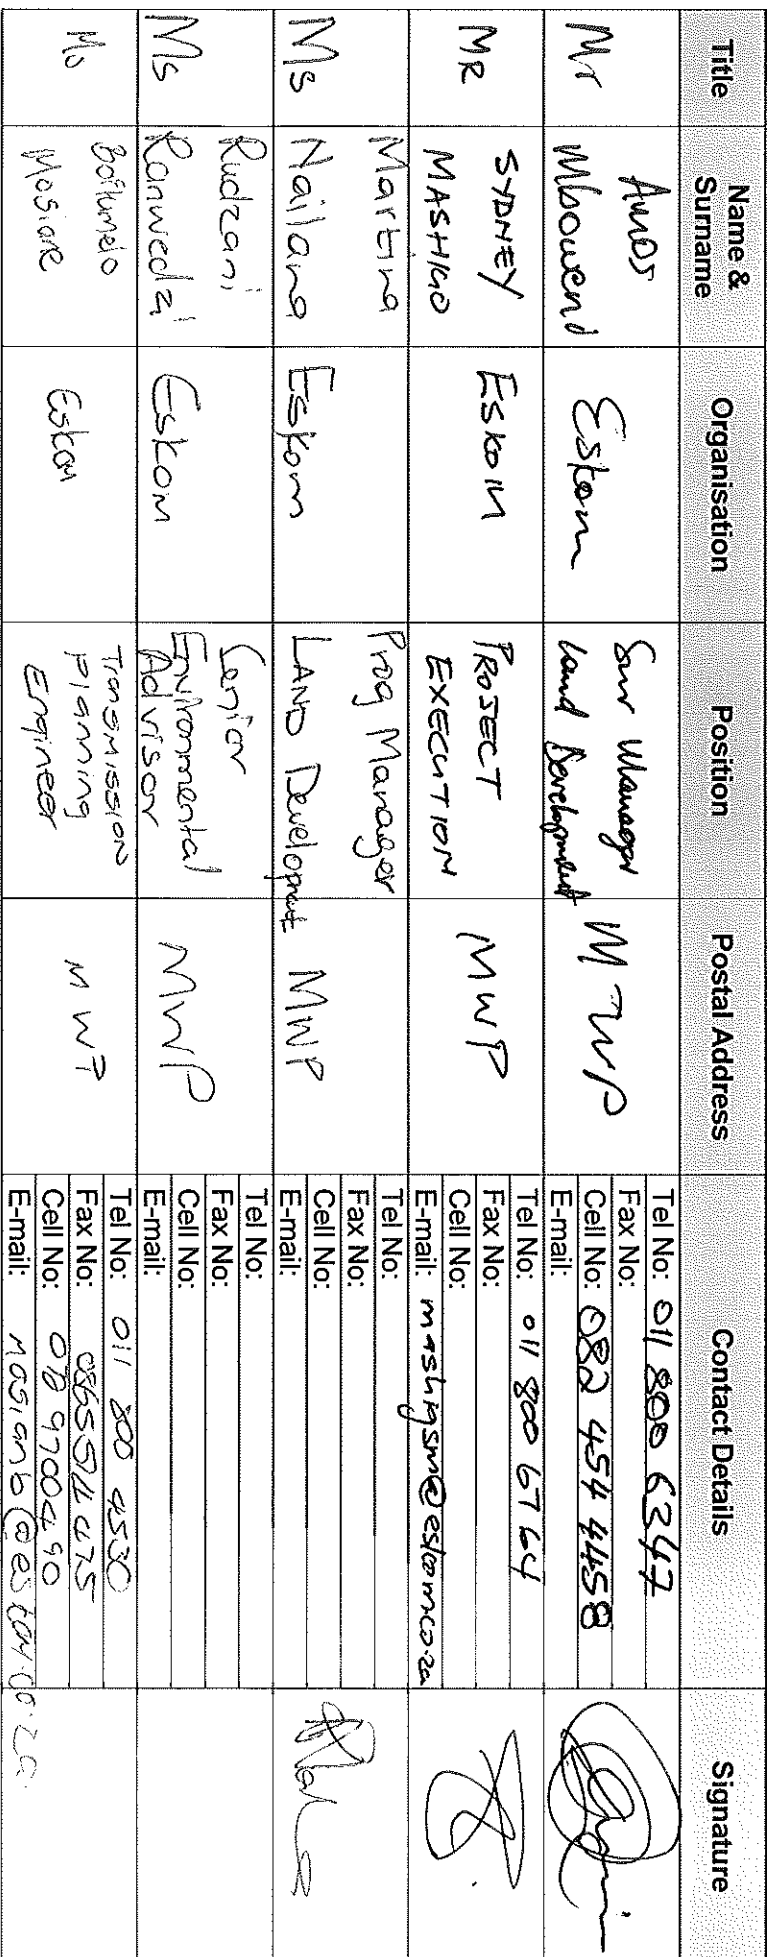 Title
Name &
Surname
Organisation
Position
Postal Address
Contact Details
Signature
Mr
Amos
Mboweni
Eskom
Snr Manager
Land Development
MWP
Tel No: 011 800 6347
Fax No:
Cell No: 082 454 4458
E-mail:
MR
SYDNEY
MASHIGO
ESKOM
PROJECT
EXECUTION
MWP
Tel No: 011 800 6764
Fax No:
Cell No:
E-mail: mashigsm@eskom.co.za
Ms
Martina
Nailana
Eskom
Prog Manager
LAND Development
MWP
Tel No:
Fax No:
Cell No:
E-mail:
Ms
Rudzani
Ranwedzi
Eskom
Senior
Environmental
Advisor
MWP
Tel No:
Fax No:
Cell No:
E-mail:
Eskom
Transmission
planning
Engineer
MWP
Tel No: 011 800 4530
Fax No:
Cell No:
E-mail: